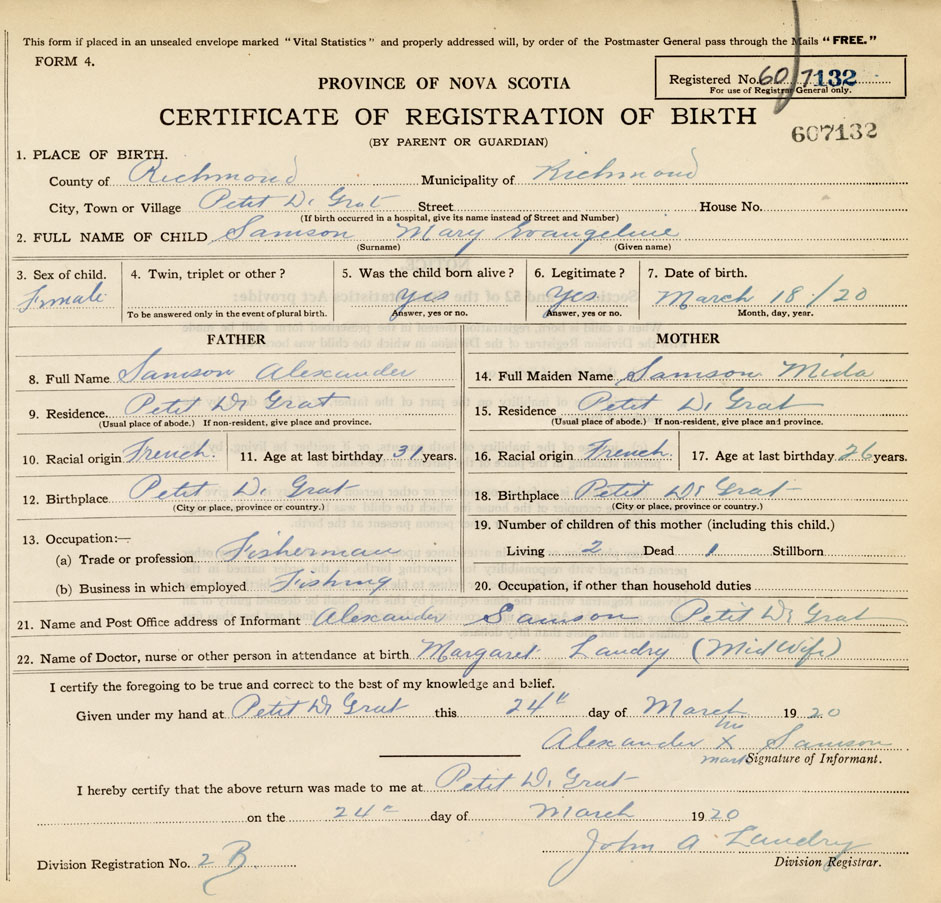 This form if placed in an unsealed envelope marked "Vital Statistics" and properly addressed will, by order of the Postmaster General pass through the Mails "FREE."
FORM 4.
Registered No. 607132
For use of Registrar General only.
PROVINCE OF NOVA SCOTIA
CERTIFICATE OF REGISTRATION OF BIRTH
607132
(BY PARENT OR GUARDIAN)
1. PLACE OF BIRTH.
County of Richmond Municipality of Richmond
City, Town or Village Petit De Grat Street House No.
(If birth occurred in a hospital, give its name instead of Street and Number)
2. FULL NAME OF CHILD Samson Mary Evangeline
(Surname) (Given name)
3. Sex of child. 4. Twin, triplet or other? 5. Was the child born alive? 6. Legitimate? 7. Date of birth.
Female yes yes March 18/20
To be answered only in the event of plural birth. Answer, yes or no. Answer, yes or no. Month, day, year.
FATHER MOTHER
8. Full Name Samson Alexander 14. Full Maiden Name Samson Mida
9. Residence. Petit De Grat 15. Residence Petit De Grat
(Usual place of abode.) If non-resident, give place and province. (Usual place of abode.) If non-resident, give place and province.
10. Racial origin French. 11. Age at last birthday 31 years. 16. Racial origin French. 17. Age at last birthday 26 years.
12. Birthplace Petit De Grat 18. Birthplace Petit De Grat
(City or place, province or country.) (City or place, province or country.)
13. Occupation:— 19. Number of children of this mother (including this child.)
(a) Trade or profession Fisherman Living 2 Dead 1 Stillborn
(b) Business in which employed Fishing 20. Occupation, if other than household duties
21. Name and Post Office address of Informant Alexander Samson Petit De Grat
22. Name of Doctor, nurse or other person in attendance at birth Margaret Landry (MidWife)
I certify the foregoing to be true and correct to the best of my knowledge and belief.
Given under my hand at Petit De Grat this 24th day of March 1920
his
Alexander X Samson
mark Signature of Informant.
I hereby certify that the above return was made to me at Petit De Grat
on the 24th day of March 1920
John A Landry
Division Registration No. 2 B Division Registrar.